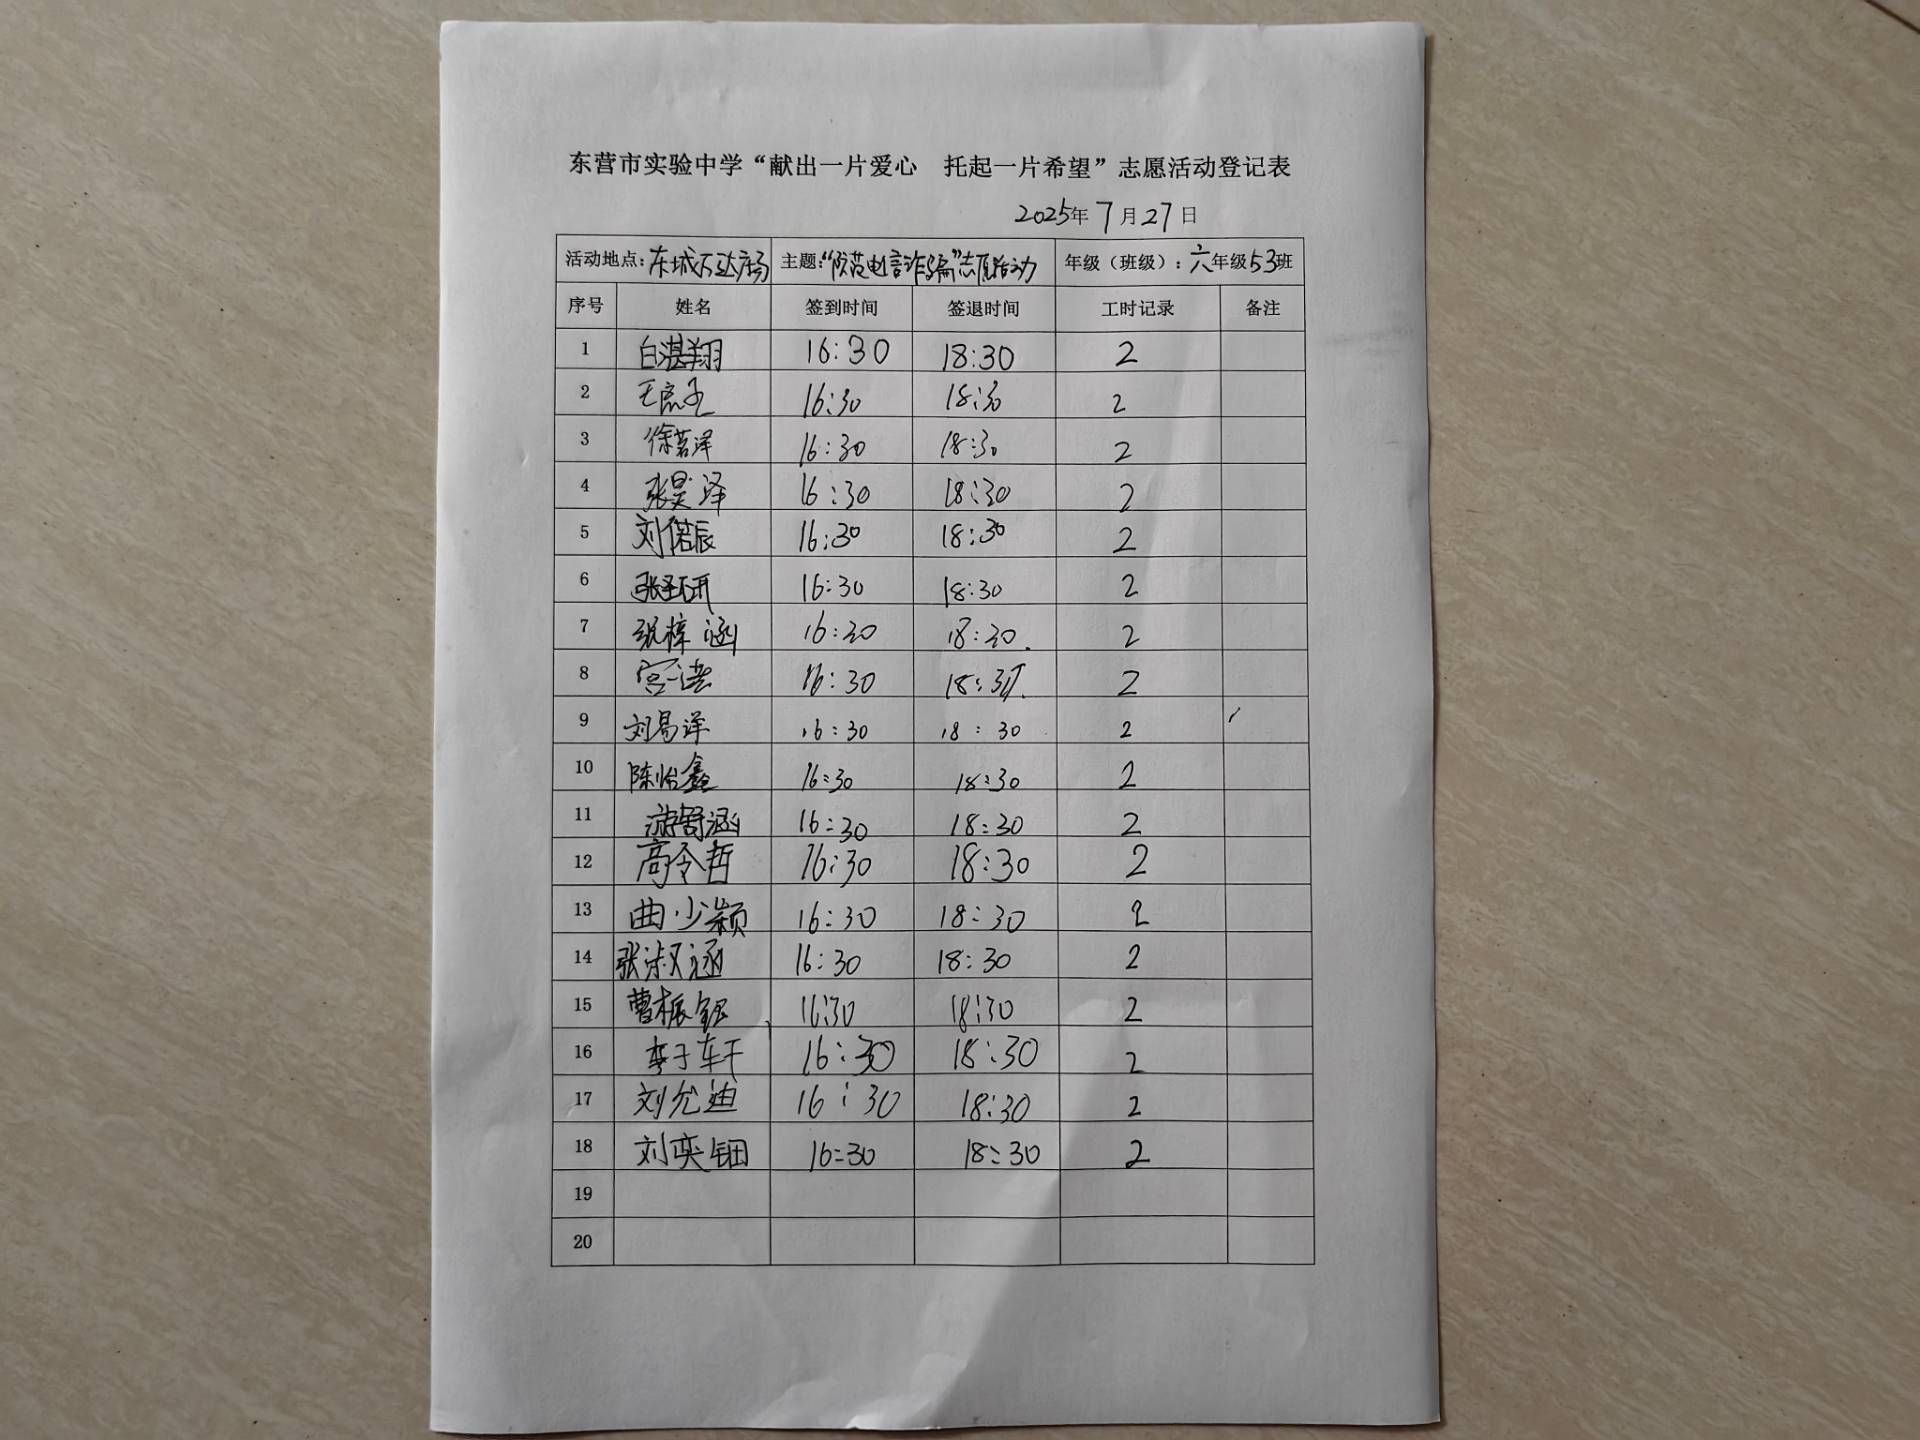 东营市实验中学“献出一片爱心 托起一片希望”志愿活动登记表
2025年7月27日
活动地点：东城万达广场 主题：“防范电信诈骗”志愿活动 年级（班级）：六年级53班
序号 姓名 签到时间 签退时间 工时记录 备注
1 白湛翔 16:30 18:30 2
2 16:30 18:30 2
3 徐茗泽 16:30 18:30 2
4 张昊泽 16:30 18:30 2
5 刘偌辰 16:30 18:30 2
6 16:30 18:30 2
7 张梓涵 16:30 18:30 2
8 宫一浩 16:30 18:30 2
9 刘易洋 16:30 18:30 2
10 陈怡鑫 16:30 18:30 2
11 游舒涵 16:30 18:30 2
12 高令哲 16:30 18:30 2
13 曲少颖 16:30 18:30 2
14 张淑涵 16:30 18:30 2
15 曹振 16:30 18:30 2
16 李子轩 16:30 18:30 2
17 刘允迪 16:30 18:30 2
18 刘奕钿 16:30 18:30 2
19
20